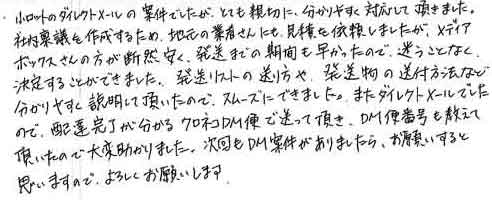 ・小ロットのダイレクトメールの案件でしたが、とても親切に、分かりやすく対応して頂きました。
社内稟議を作成するため、地元の業者さんにも見積を依頼しましたが、メディア
ボックスさんの方が断然安く、発送までの期間も早かったので、迷うことなく
決定することができました。発送リストの送り方や、発送物の送付方法など
分かりやすく説明して頂いたので、スムーズにできました。まだダイレクトメールでした
ので、配達完了が分かるクロネコDM便で送って頂き、DM便番号も教えて
頂いたので大変助かりました。次回もDM案件がありましたら、お願いすると
思いますので、よろしくお願いします。